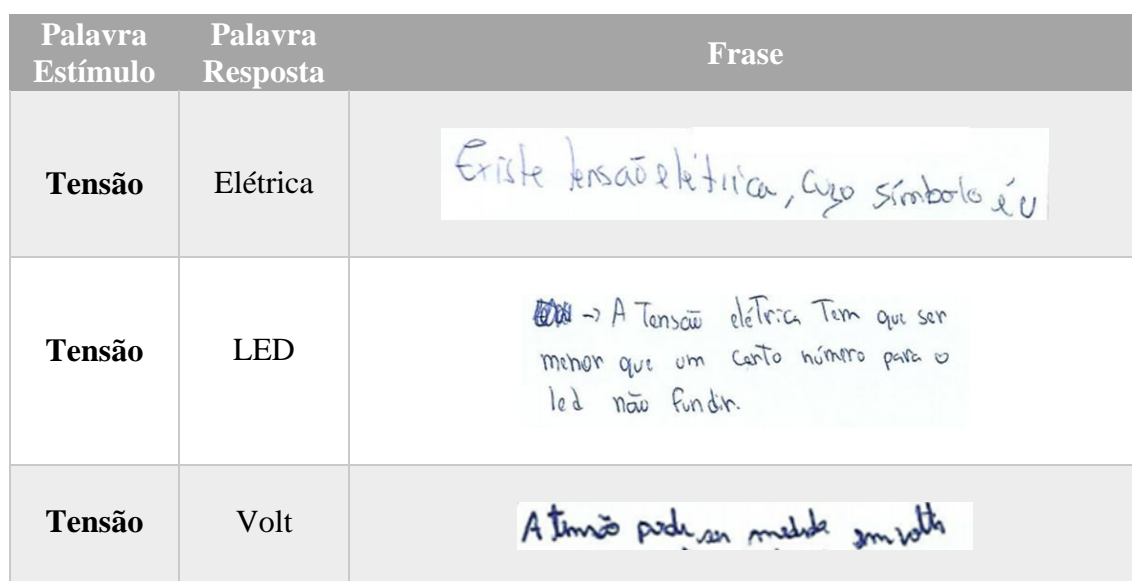 Palavra Estímulo
Palavra Resposta
Frase
Tensão
Elétrica
Existe tensão elétrica, cujo símbolo é U
Tensão
LED
-> A Tensão elétrica Tem que ser
menor que um certo número para o
led não fundir.
Tensão
Volt
A tensão pode ser medida em volts